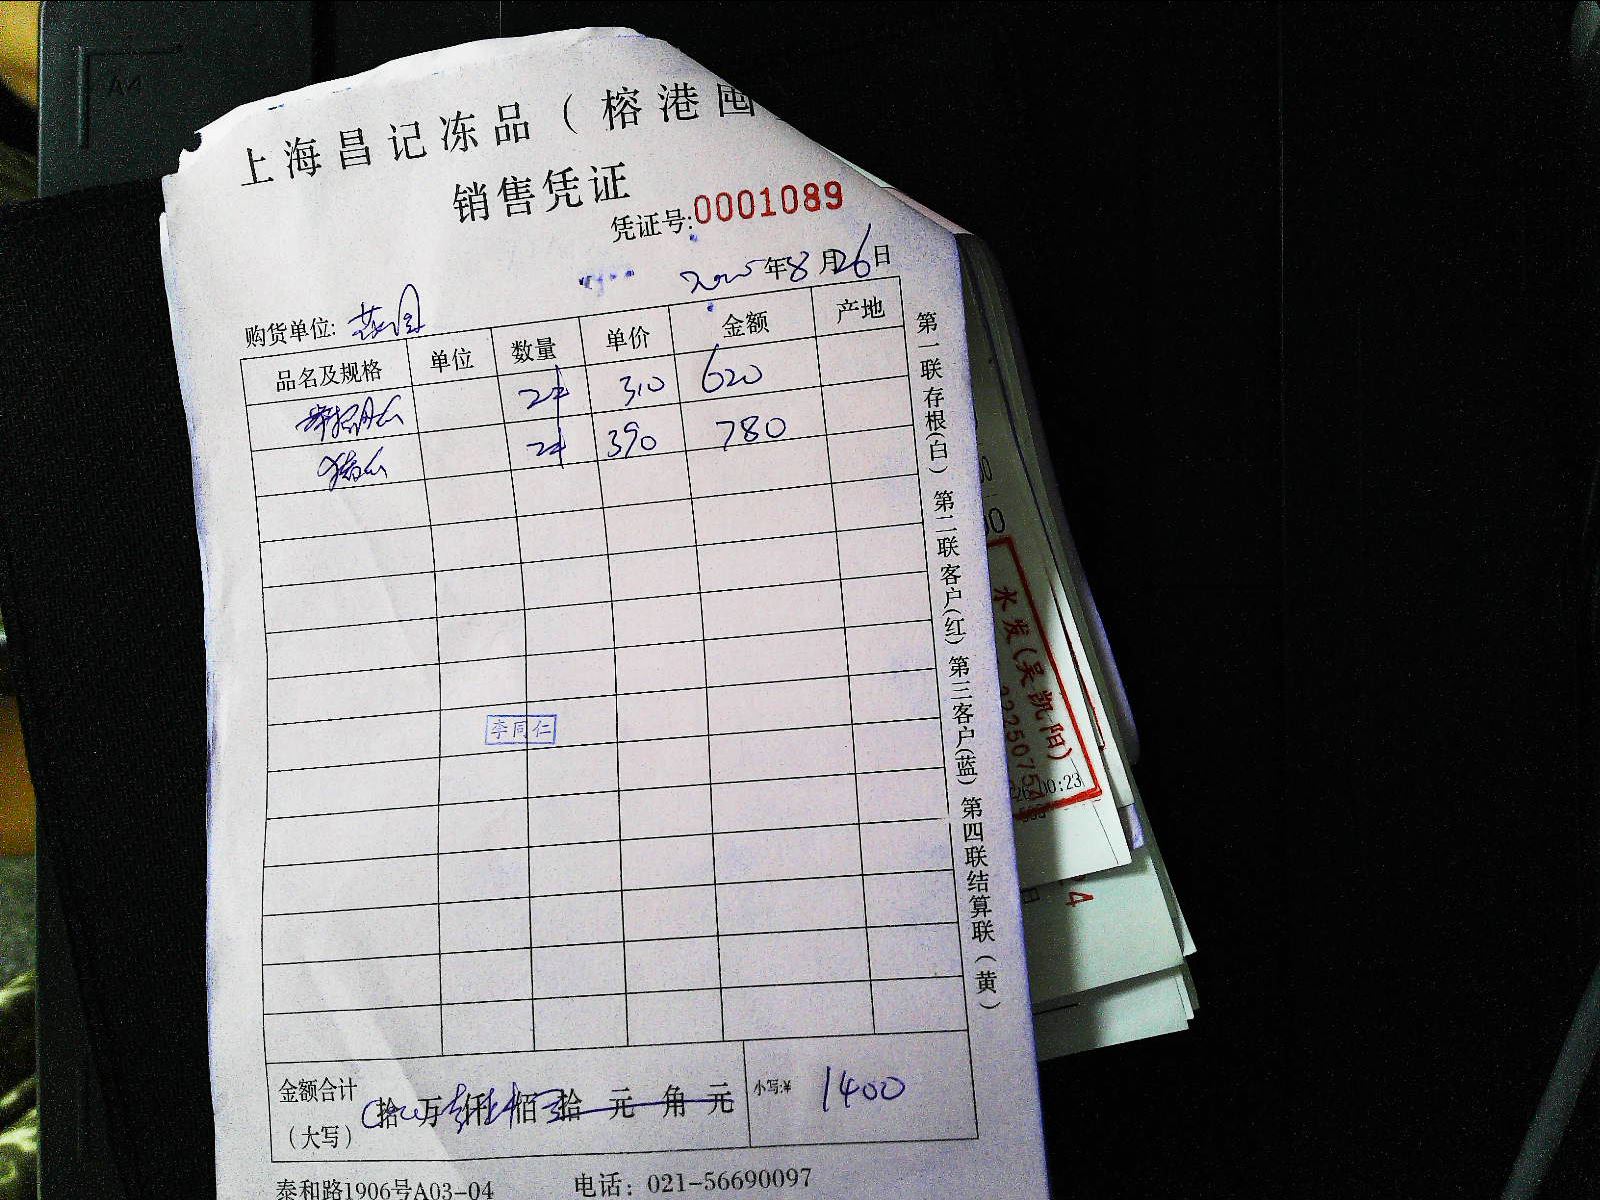 上海昌记冻品（榕港囤
销售凭证
凭证号:0001089
2025年8月26日
购货单位:
品名及规格 单位 数量 单价 金额 产地
2件 310 620
2件 390 780
李同仁
金额合计（大写） 拾 万 仟 佰 拾 元 角 元 小写:¥ 1400
泰和路1906号A03-04 电话：021-56690097
第一联存根(白) 第二联客户(红) 第三客户(蓝) 第四联结算联（黄）
水发(吴凯阳)
00:23